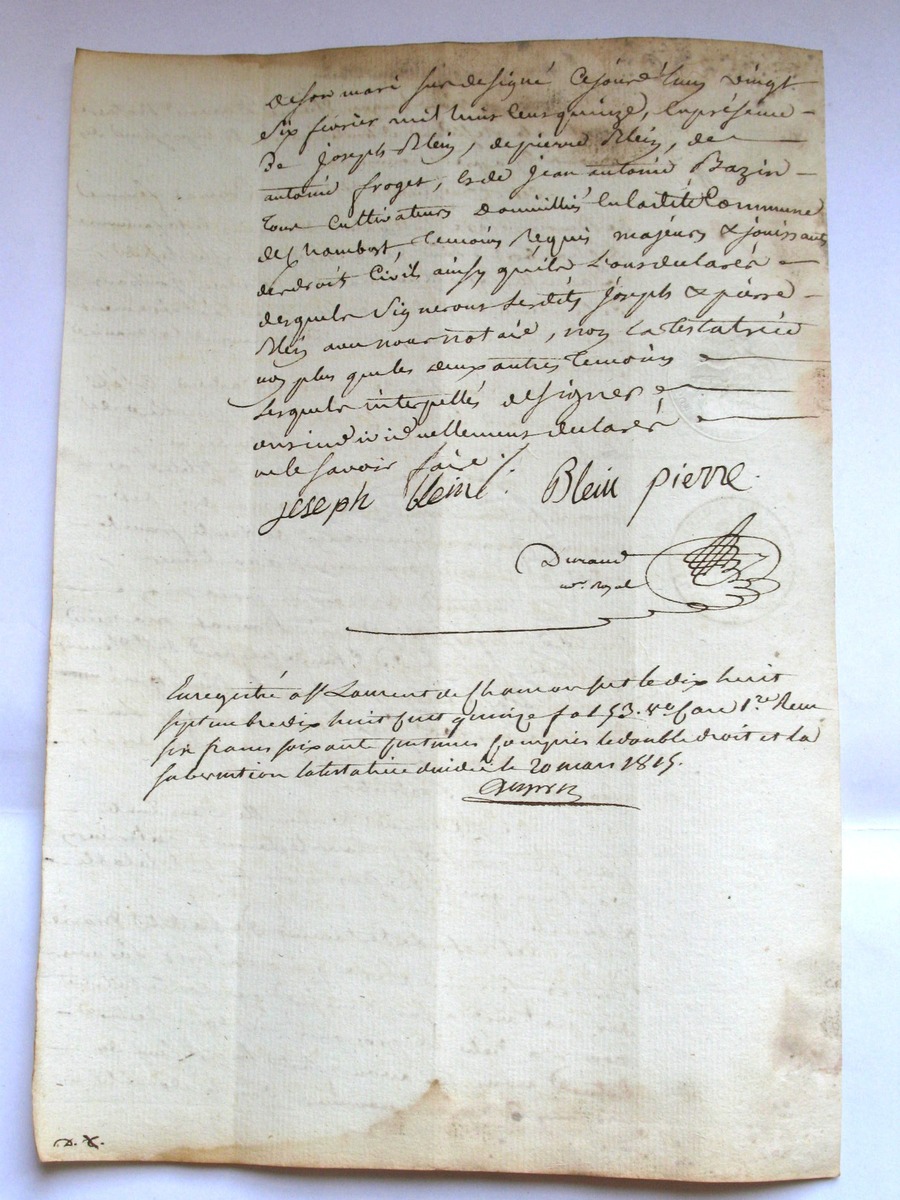 de son mari susdesigné cejourd'huy vingt
six fevrier mil huit cent quinze, en présence
de joseph Blein, de pierre Blein, de
antoine froget, et de jean antoine Bazin
tous cultivateurs domiciliés en laditte Commune
de Chambost, temoins requis majeurs & jouissants
des droits Civils ainsy qu'ils l'ont declaré
desquels signeront lesdits joseph & pierre
Blein avec nous notaire, non la testatrice
non plus que les deux autres temoins
lesquels interpellés de signer
ont individuellement declaré
ne le savoir faire ./.
joseph blein . Blein pierre .
Durand
nre. Royal
Enregistré à St Laurent de Chamousset le dix huit
septembre dix huit cent quinze fol 53. vo. Case 1re Reçu
six francs soixante centimes compris le double droit et la
subvention la testatrice decidée le 20 mars 1815.
D. X.